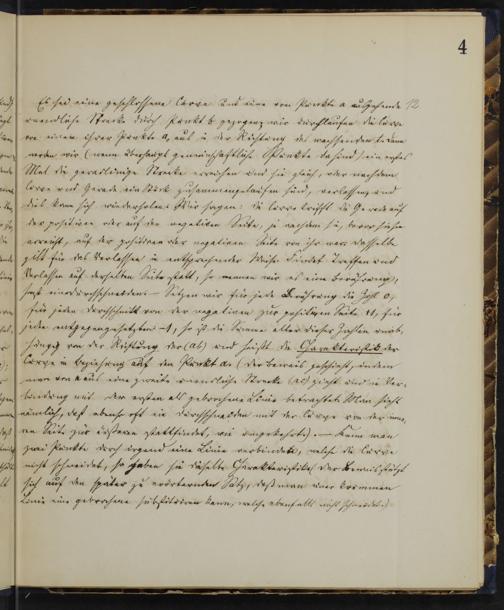 4
Es sei eine geschlossene Curve und eine von Punkte a ausgehende 12
unendliche Strecke durch Punkt b gezogen; wir durchlaufen die Curve
von einem ihrer Punkte aus in der Richtung des wachsenden t. Dann
werden wir (wenn überhaupt gemeinschaftliche Punkte da sind) ein erstes
Mal die geradlinige Strecke erreichen und sie gleich, oder nachdem
Curve und Gerade ein Stück zusammengelaufen sind, verlassen, und
dies kann sich wiederholen. Wir sagen: die Curve trifft die Gerade auf
der positiven oder auf der negativen Seite, je nachdem sie, bevor sie sie
erreicht, auf der positiven oder negativen Seite von ihr war; dasselbe
gilt für das Verlassen in entsprechender Weise. Findet Treffen und
Verlassen auf derselben Seite statt, so nennen wir es eine Berührung,
sonst ein Durchschneiden. — Setzen wir für jede Berührung die Zahl 0,
für jeden Durchschnitt von der negativen zur positiven Seite +1, für
jeden entgegengesetzten -1, so ist die Summe aller dieser Zahlen unab-
hängig von der Richtung der (ab) und heißt die Charakteristik der
Curve in Beziehung auf den Punkt a. (Der Beweis geschieht, indem
man von a aus eine zweite unendliche Strecke (ac) zieht und in Ver-
bindung mit der ersten als gebrochene Linie betrachtet. Man sieht
nämlich, daß ebenso oft ein Durchschneiden mit der Curve von der inne-
ren Seite zur äußeren stattfindet, wie umgekehrt). — Kann man
zwei Punkte durch irgend eine Linie verbinden, welche die Curve
nicht schneidet, so haben sie dieselbe Charakteristik (der Beweis stützt
sich auf den später zu erörternden Satz, daß man einer krummen
Linie eine gebrochene substituiren kann, welche ebenfalls nicht schneidet).